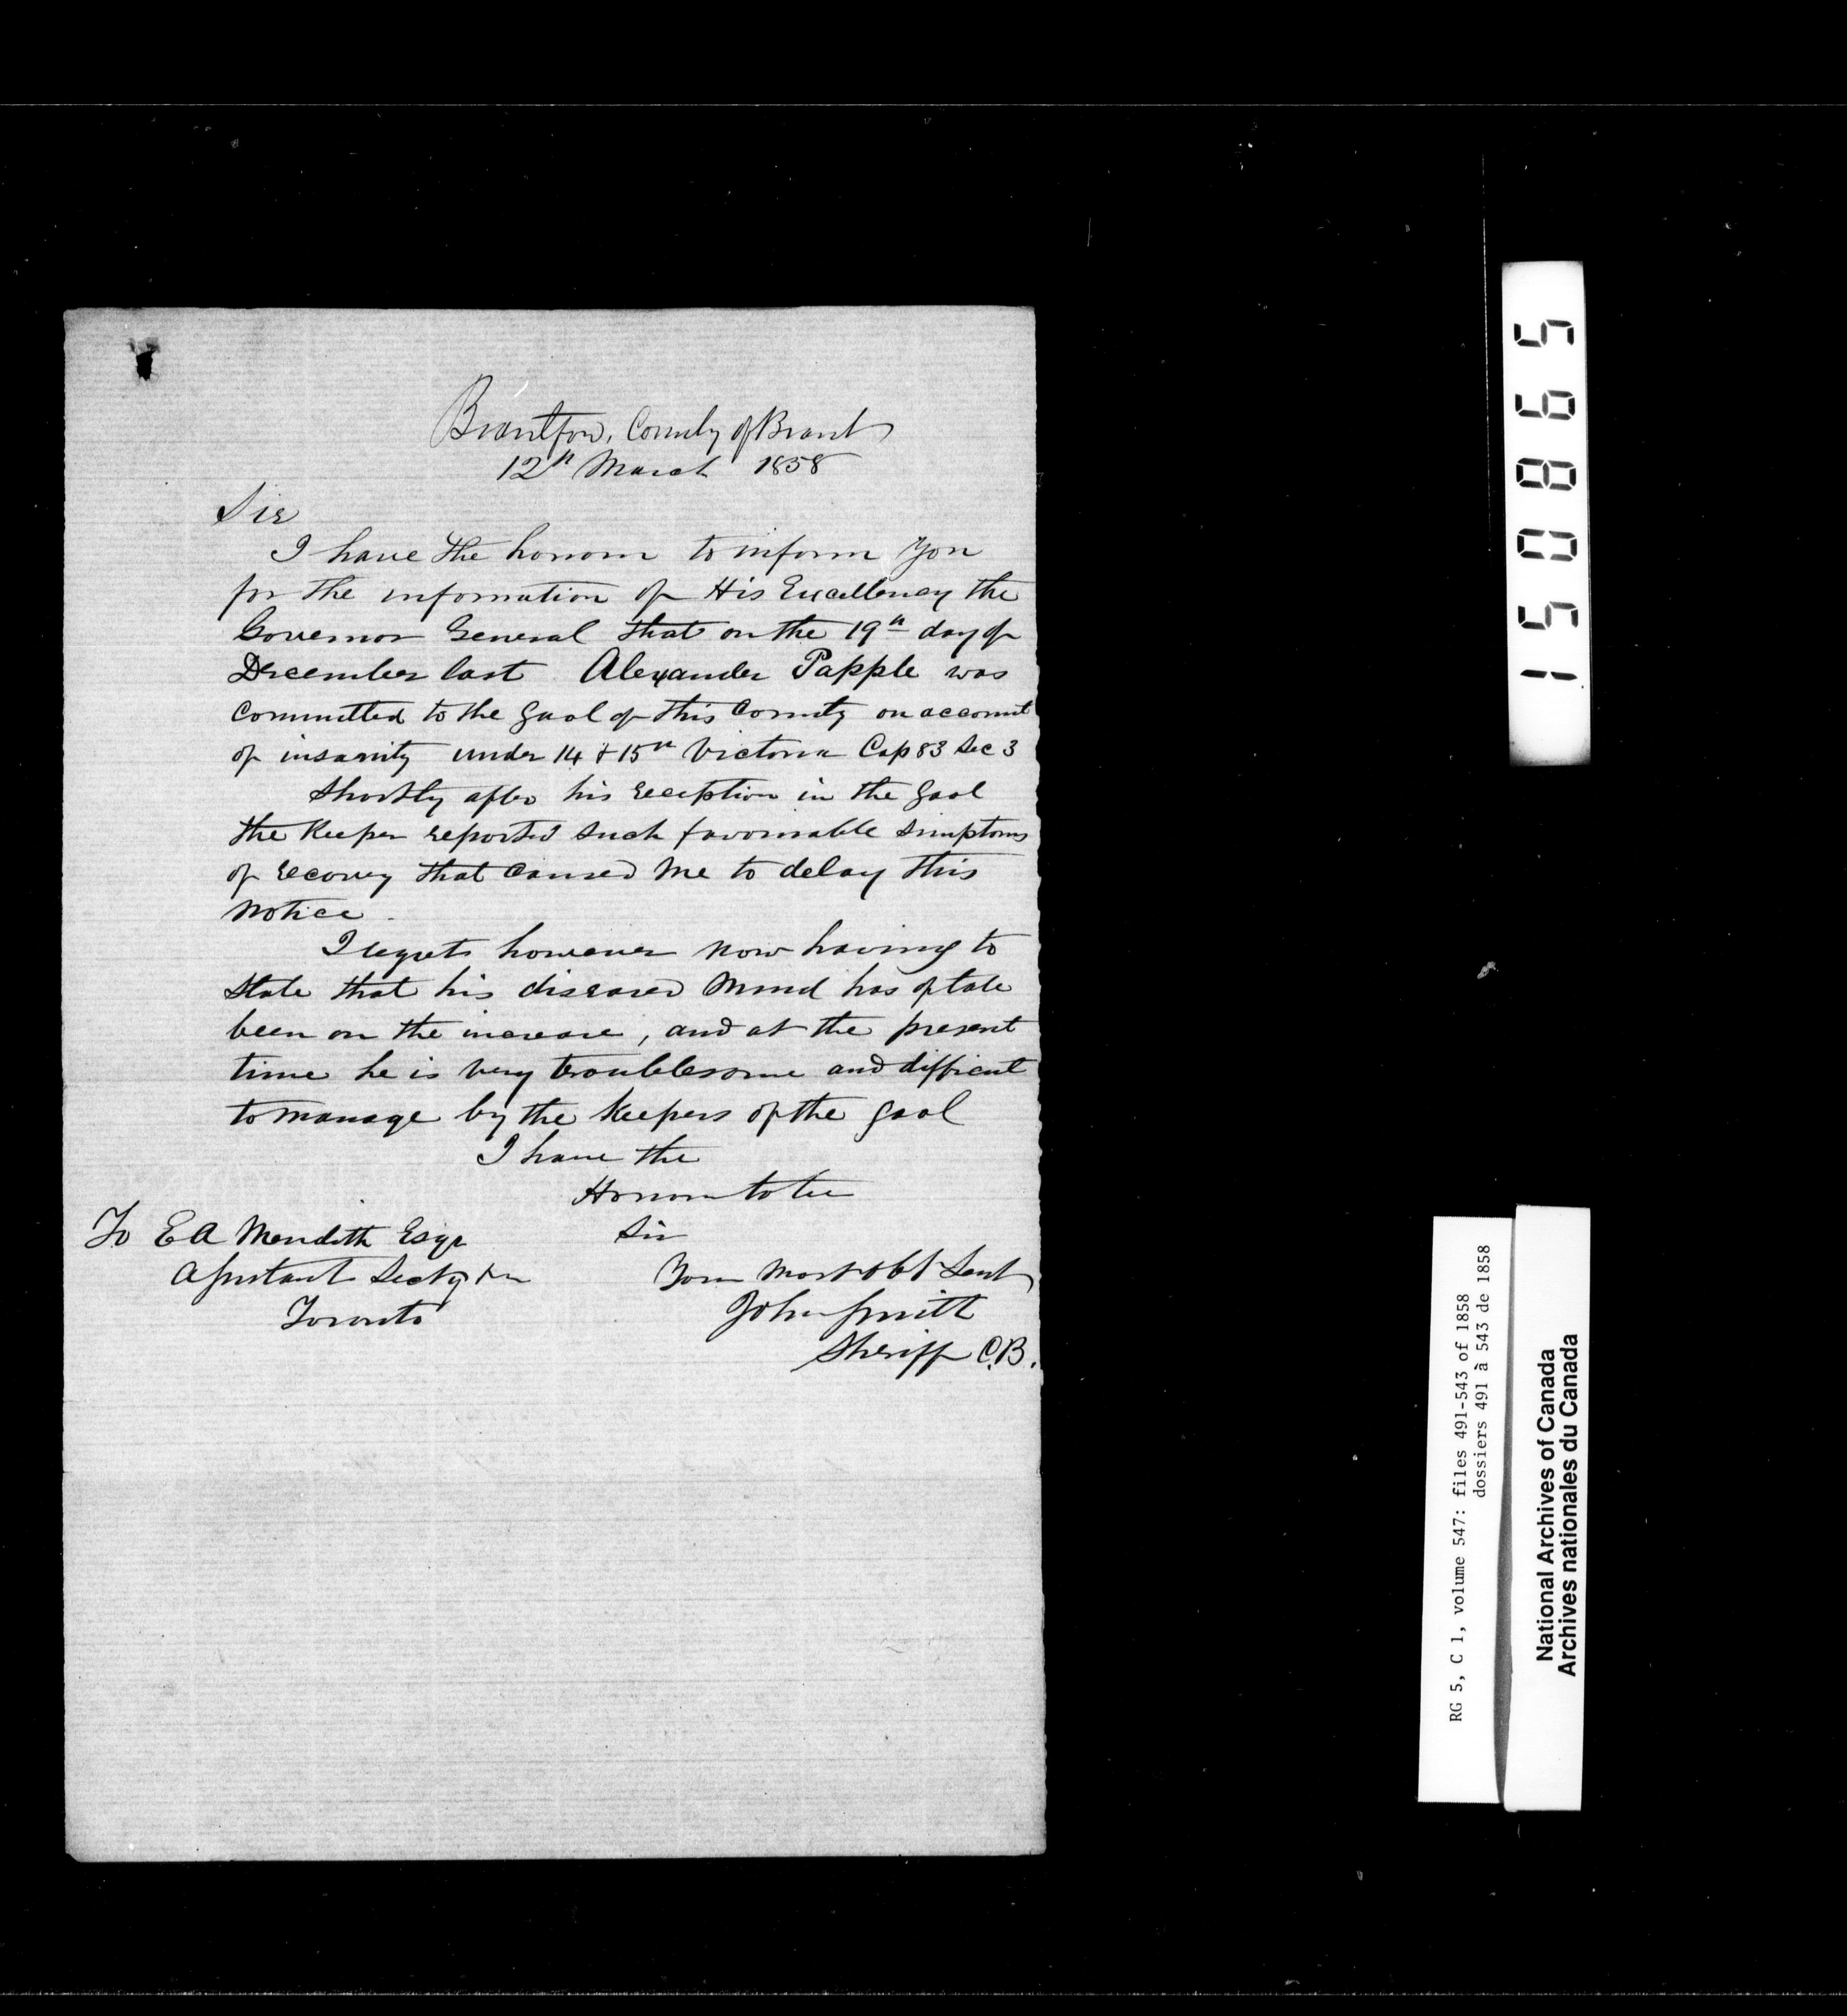 Brantford, County of Brant
12th March 1858
Sir
I have the honour to inform you
for the information of His Excellency the
Governor General that on the 19th day of
December last Alexander Papple was
committed to the gaol of this County on account
of insanity under 14 & 15th Victoria Cap 83 Sec 3
Shortly after his reception in the gaol
the Keeper reported such favourable simptoms
of recovery that caused me to delay this
notice.
I regret however now having to
state that his diseased mind has of late
been on the increase, and at the present
time he is very troublesome and difficult
to manage by the keepers of the gaol
I have the
Honour to be
Sir
Your most obt Servt
John Smith
Sheriff C.B.
To E A Meredith Esqr
Assistant Secty
Toronto
150865
RG 5, C 1, volume 547: files 491-543 of 1858
dossiers 491 à 543 de 1858
National Archives of Canada
Archives nationales du Canada